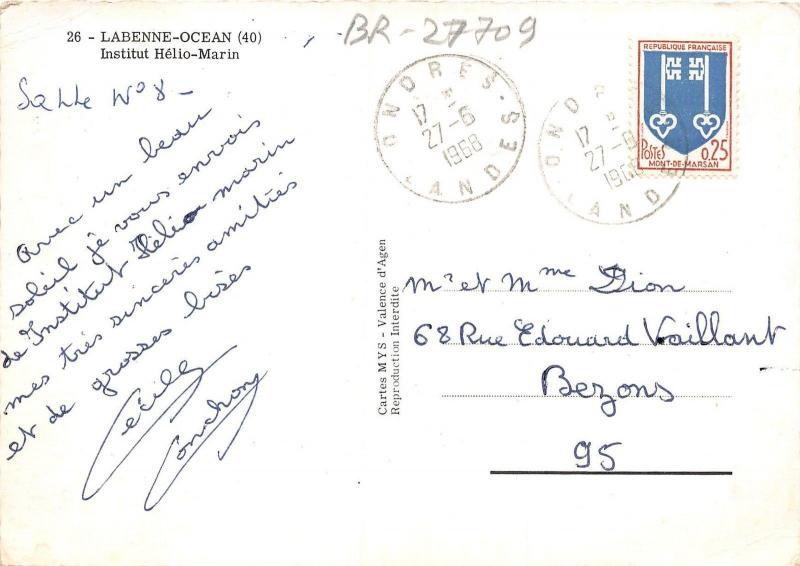 26 - LABENNE-OCEAN (40)
Institut Hélio-Marin
BR-27709
Salle N° 8 -
Avec un beau
soleil je vous envois
de Institut Hélio marin
mes très sincères amitiés
et de grosses bises
Cécile
Conchon
ONDRES - LANDES
17
27-6
1968
ONDR
17
27-6
196
LAND
REPUBLIQUE FRANÇAISE
POSTES 0,25
MONT-DE-MARSAN
Cartes MYS - Valence d'Agen
Reproduction Interdite
Mr et Mme Dion
68 Rue Edouard Vaillant
Bezons
95